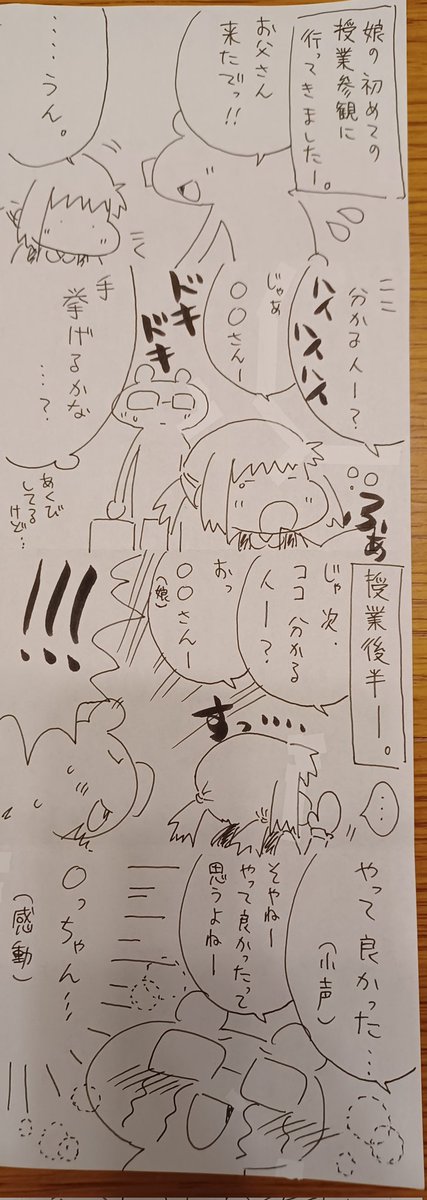 娘の初めての
授業参観に
行ってきましたー。
お父さん
来たでっ!!
……うん。
分かる人ー?
ハイ
ハイハイ
じゃあ
〇〇さんー
ドキ
ドキ
手
挙げるかな
…?
ふぁ
あくび
してる
けど…
授業後半ー。
じゃ次、
ココ分かる
人ー?
おっ
〇〇さんー
(娘)
!!!
すっ‥‥
…
やって良かった…
(小声)
そやねー
やって良かったって
思うよねー
〇っちゃん…
(感動)